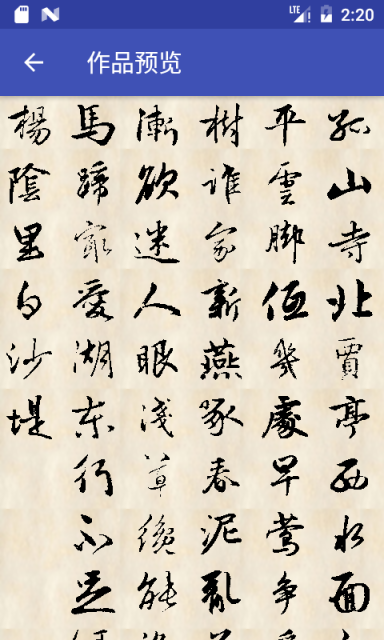 LTE 2:20
作品预览
孤山寺北賈亭西水面
平雲脚低幾處早莺争
樹谁家新燕啄春泥亂
漸欲迷人眼淺草纔能
馬蹄冣愛湖东行不足
楊陰里白沙堤